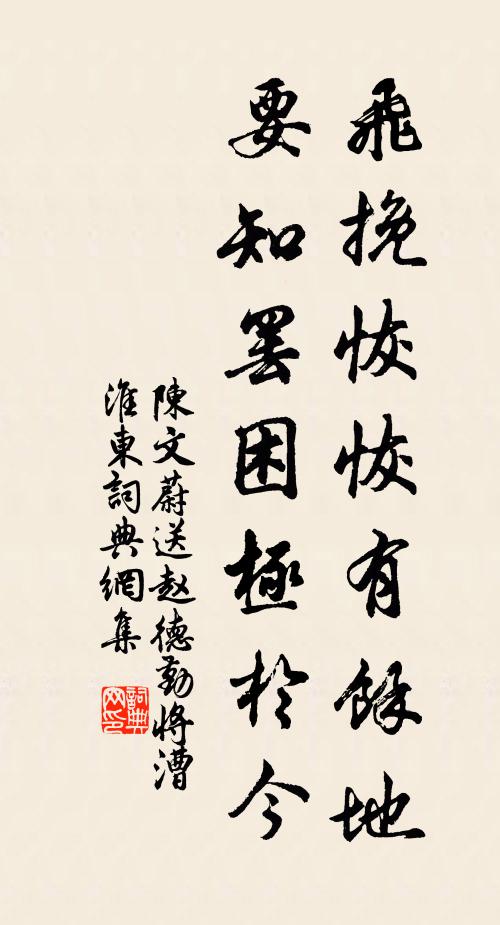 飛挽恢恢有餘地
要知罢困極於今
陳文蔚送赵德勤將漕
淮東詞典網集
詞典网印